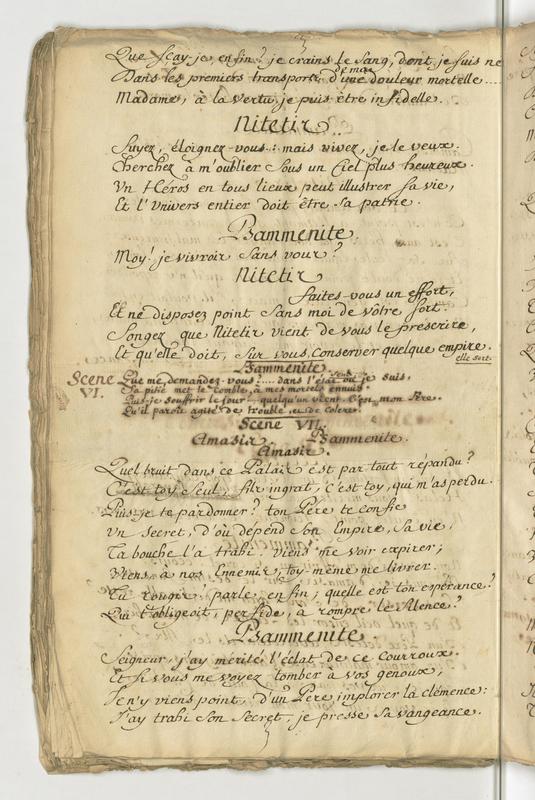 Que scay-je enfin? je crains le Sang, dont je suis né
Dans les premiers transports d'une douleur mortelle....
de ma
Madame, à la vertu je puis être infidelle.
Nitetis..
Fuyez, éloignez-vous: mais vivez, je le veux.
Cherchez à m'oublier sous un Ciel plus heureux.
Un Héros en tous lieux peut illustrer sa vie,
Et l'Univers entier doit être sa patrie.
Psammenite
Moy! je vivrois sans vous?
Nitetis
Faites-vous un effort,
Et ne disposez point sans moi de vôtre sort.
Songez que Nitetis vient de vous le prescrire,
Et qu'elle doit, sur vous, conserver quelque empire.
elle sort.
Psammenite
Scene VI.
Que me demandez-vous?.... dans l'état où je suis,
Sa pitié met le comble à mes mortels ennuis.
Puis-je souffrir le jour.... quelqu'un vient. C'est mon Père.
Qu'il paroît agité de trouble, et de colere.
Scene VII.
Amasis. Psammenite.
Amasis.
Quel bruit dans ce Palais est par tout répandu?
C'est toy seul, fils ingrat, c'est toy, qui m'as perdu.
Puis-je te pardonner? ton Père te confie
Un secret, d'où dépend son Empire, sa vie,
Ta bouche l'a trahi. viens me voir expirer;
Viens à nos Ennemis, toy-même me livrer.
Tu rougis, parle, enfin; quelle est ton espérance?
Qui t'obligeoit, perfide, à rompre le silence?
Psammenite.
Seigneur, j'ay mérité l'éclat de ce courroux.
Et si vous me voyez tomber à vos genoux,
Je n'y viens point, d'un Père implorer la clémence:
J'ay trahi son secret, je presse sa vangeance.